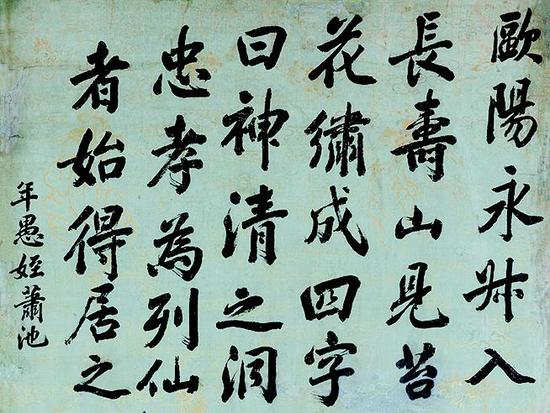 歐陽永叔入
長壽山見苔
花繡成四字
曰神清之洞
忠孝為列仙
者始得居之
年愚姪蕭池